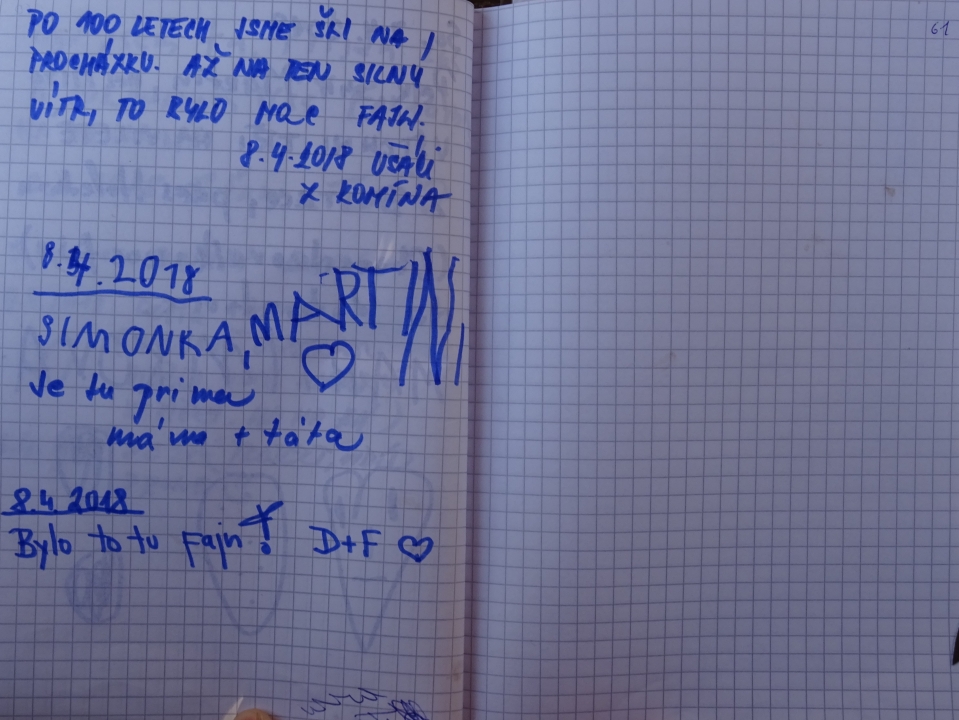 PO 100 LETECH JSME ŠLI NA
PROCHÁZKU. AŽ NA TEN SILNÝ
VÍTR, TO BYLO MOC FAJN.
8.4.2018 UŠÁLI
Z KOMÍNA
8.4.2018
SIMONKA, MARTIN,
Je tu prima
máma + táta
8.4.2018
Bylo to tu Fajn! D+F
61